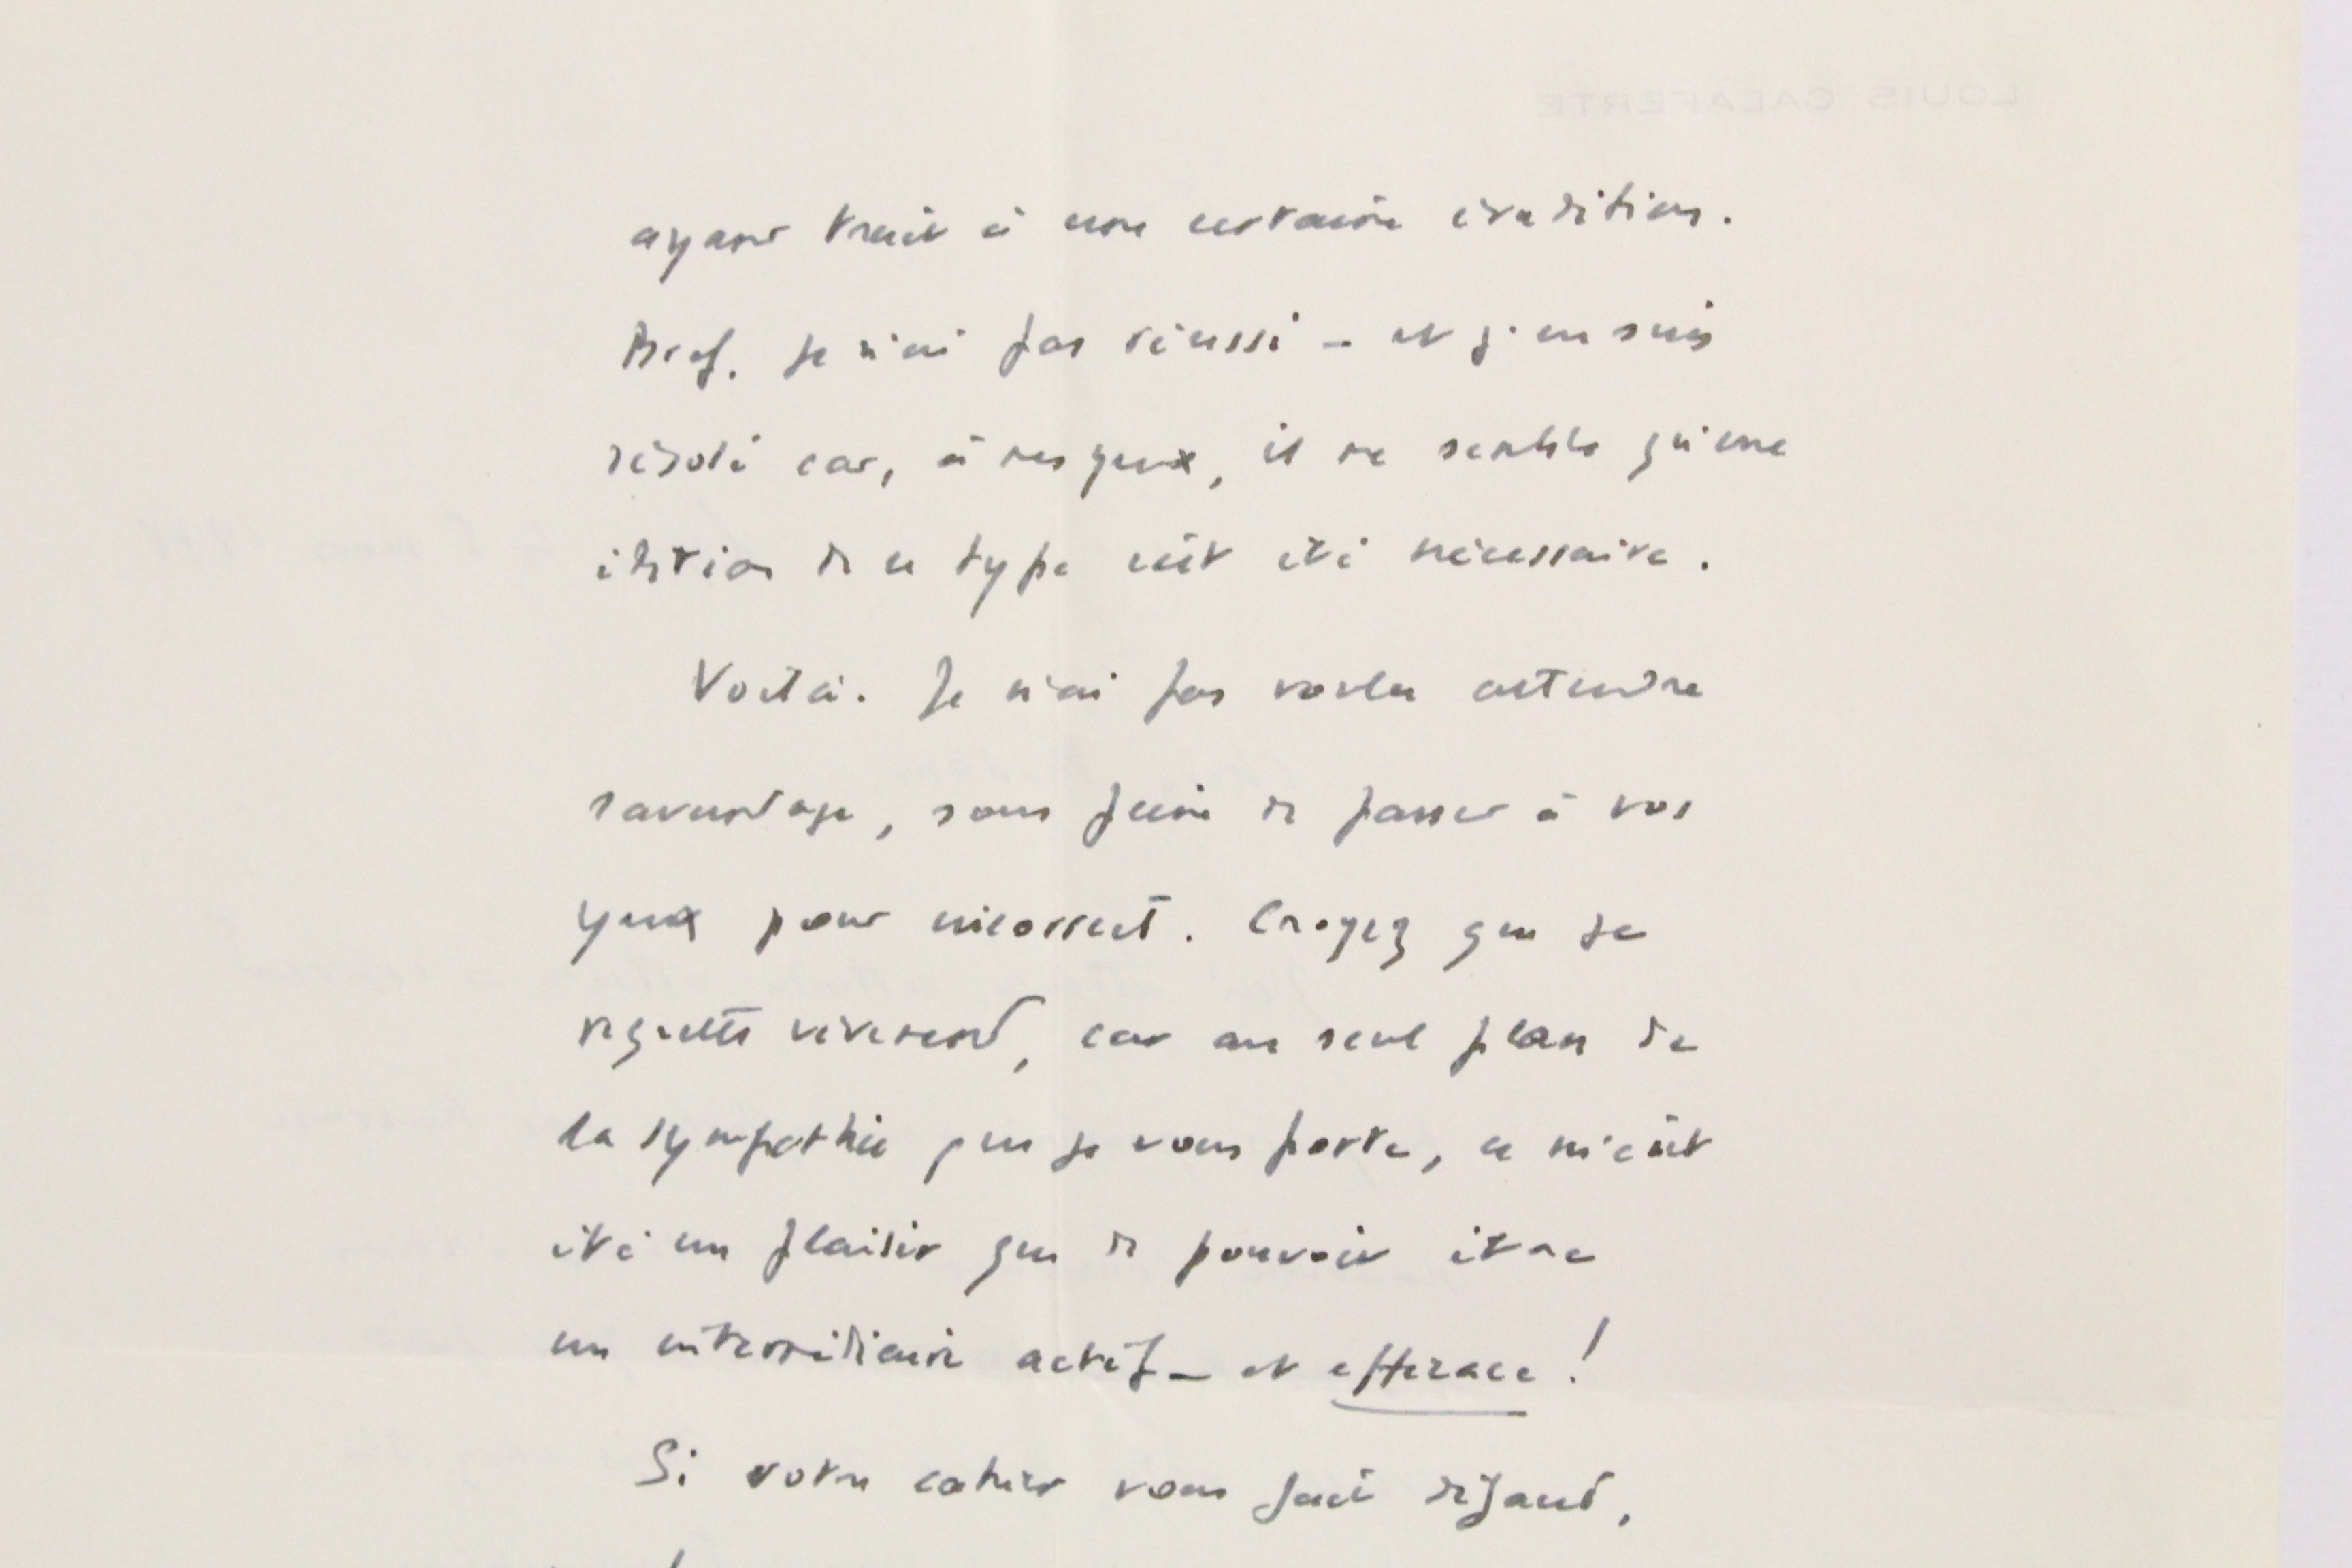 LOUIS CALAFERTE
ayant trait à une certaine érudition.
Bref. Je n'ai pas réussi – et j'en suis
désolé car, à mes yeux, il me semble qu'une
édition de ce type eût été nécessaire.
Voilà. Je n'ai pas voulu attendre
davantage, sous peine de passer à vos
yeux pour incorrect. Croyez que je
regrette vivement, car au seul plan de
la sympathie que je vous porte, ce m'eût
été un plaisir que de pouvoir être
un intermédiaire actif – et efficace !
Si votre cahier vous fait défaut,